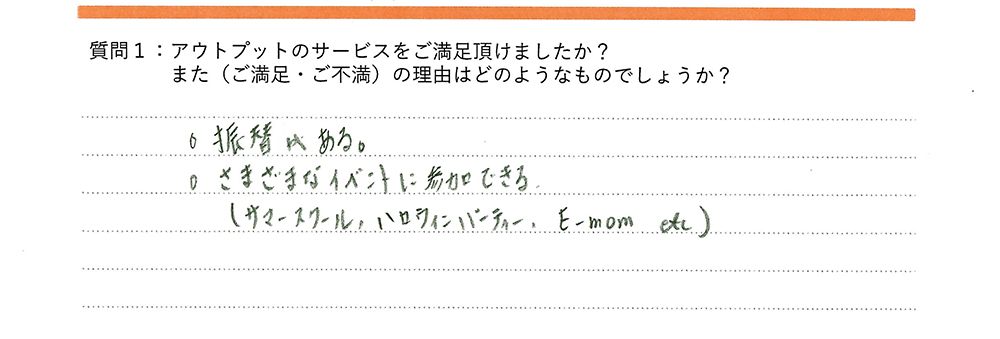 質問１：アウトプットのサービスをご満足頂けましたか？
また（ご満足・ご不満）の理由はどのようなものでしょうか？
○ 振替がある。
○ さまざまなイベントに参加できる.
（サマースクール, ハロウィンパーティー, E-mom etc）